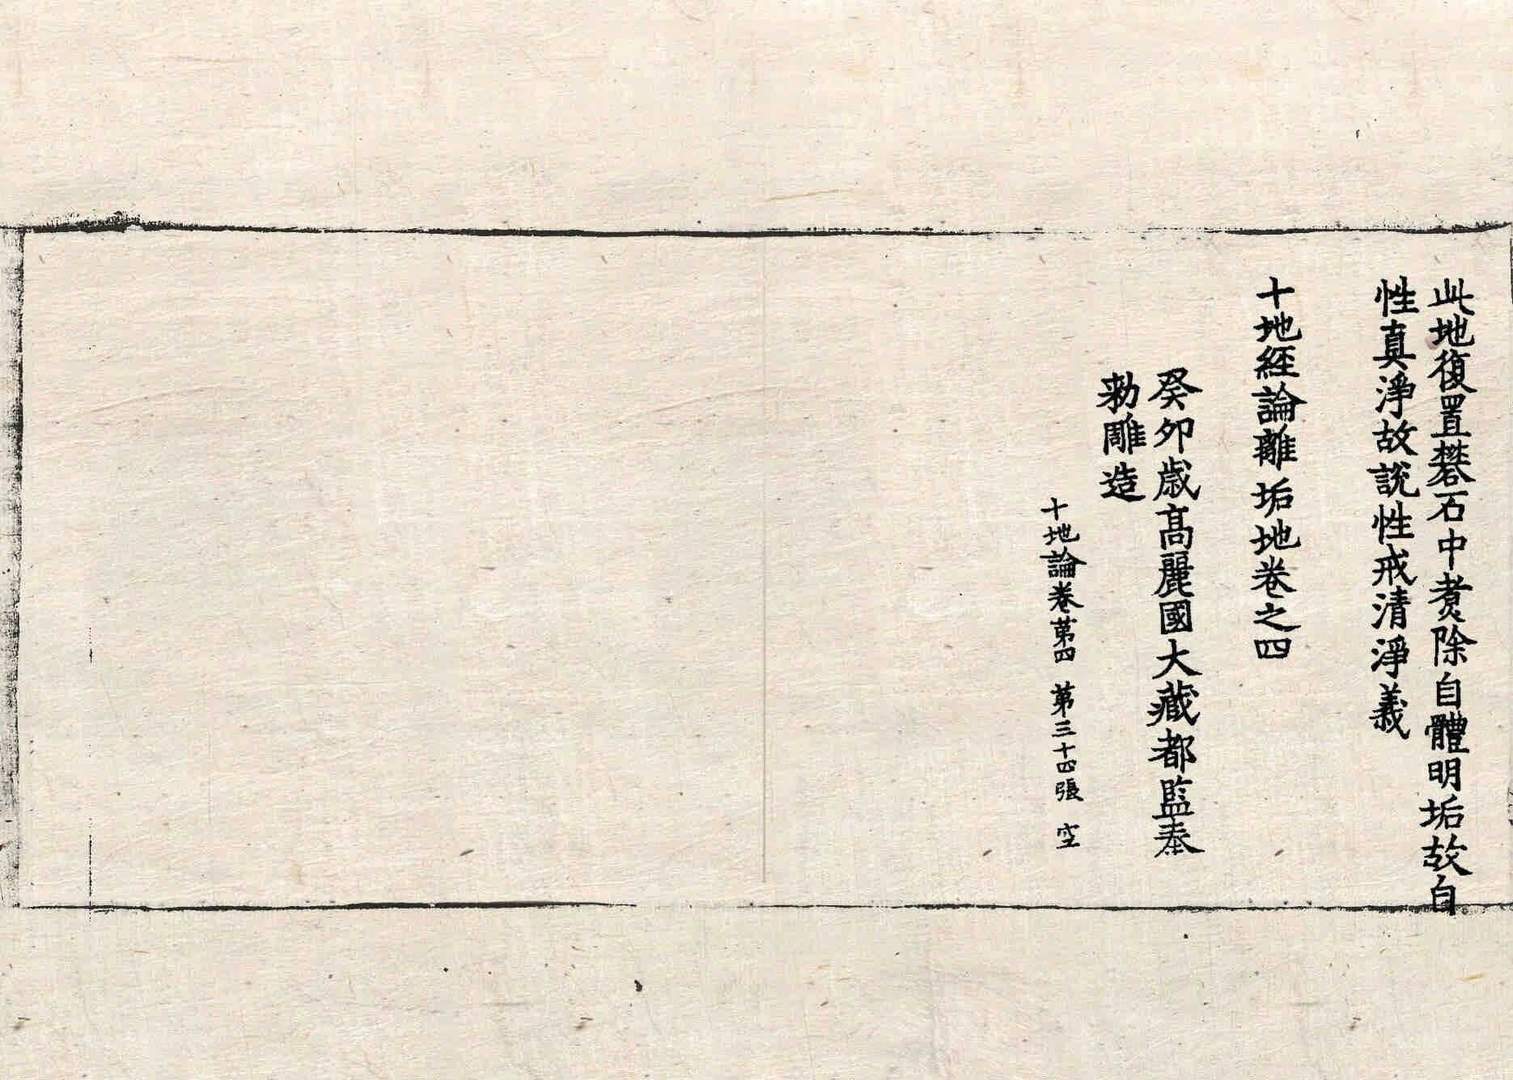 此地復置礬石中煮除自體明垢故自
性真淨故說性戒清淨義
十地經論離垢地卷之四
癸卯歲高麗國大藏都監奉
勑雕造
十地論卷第四 第三十四張 空